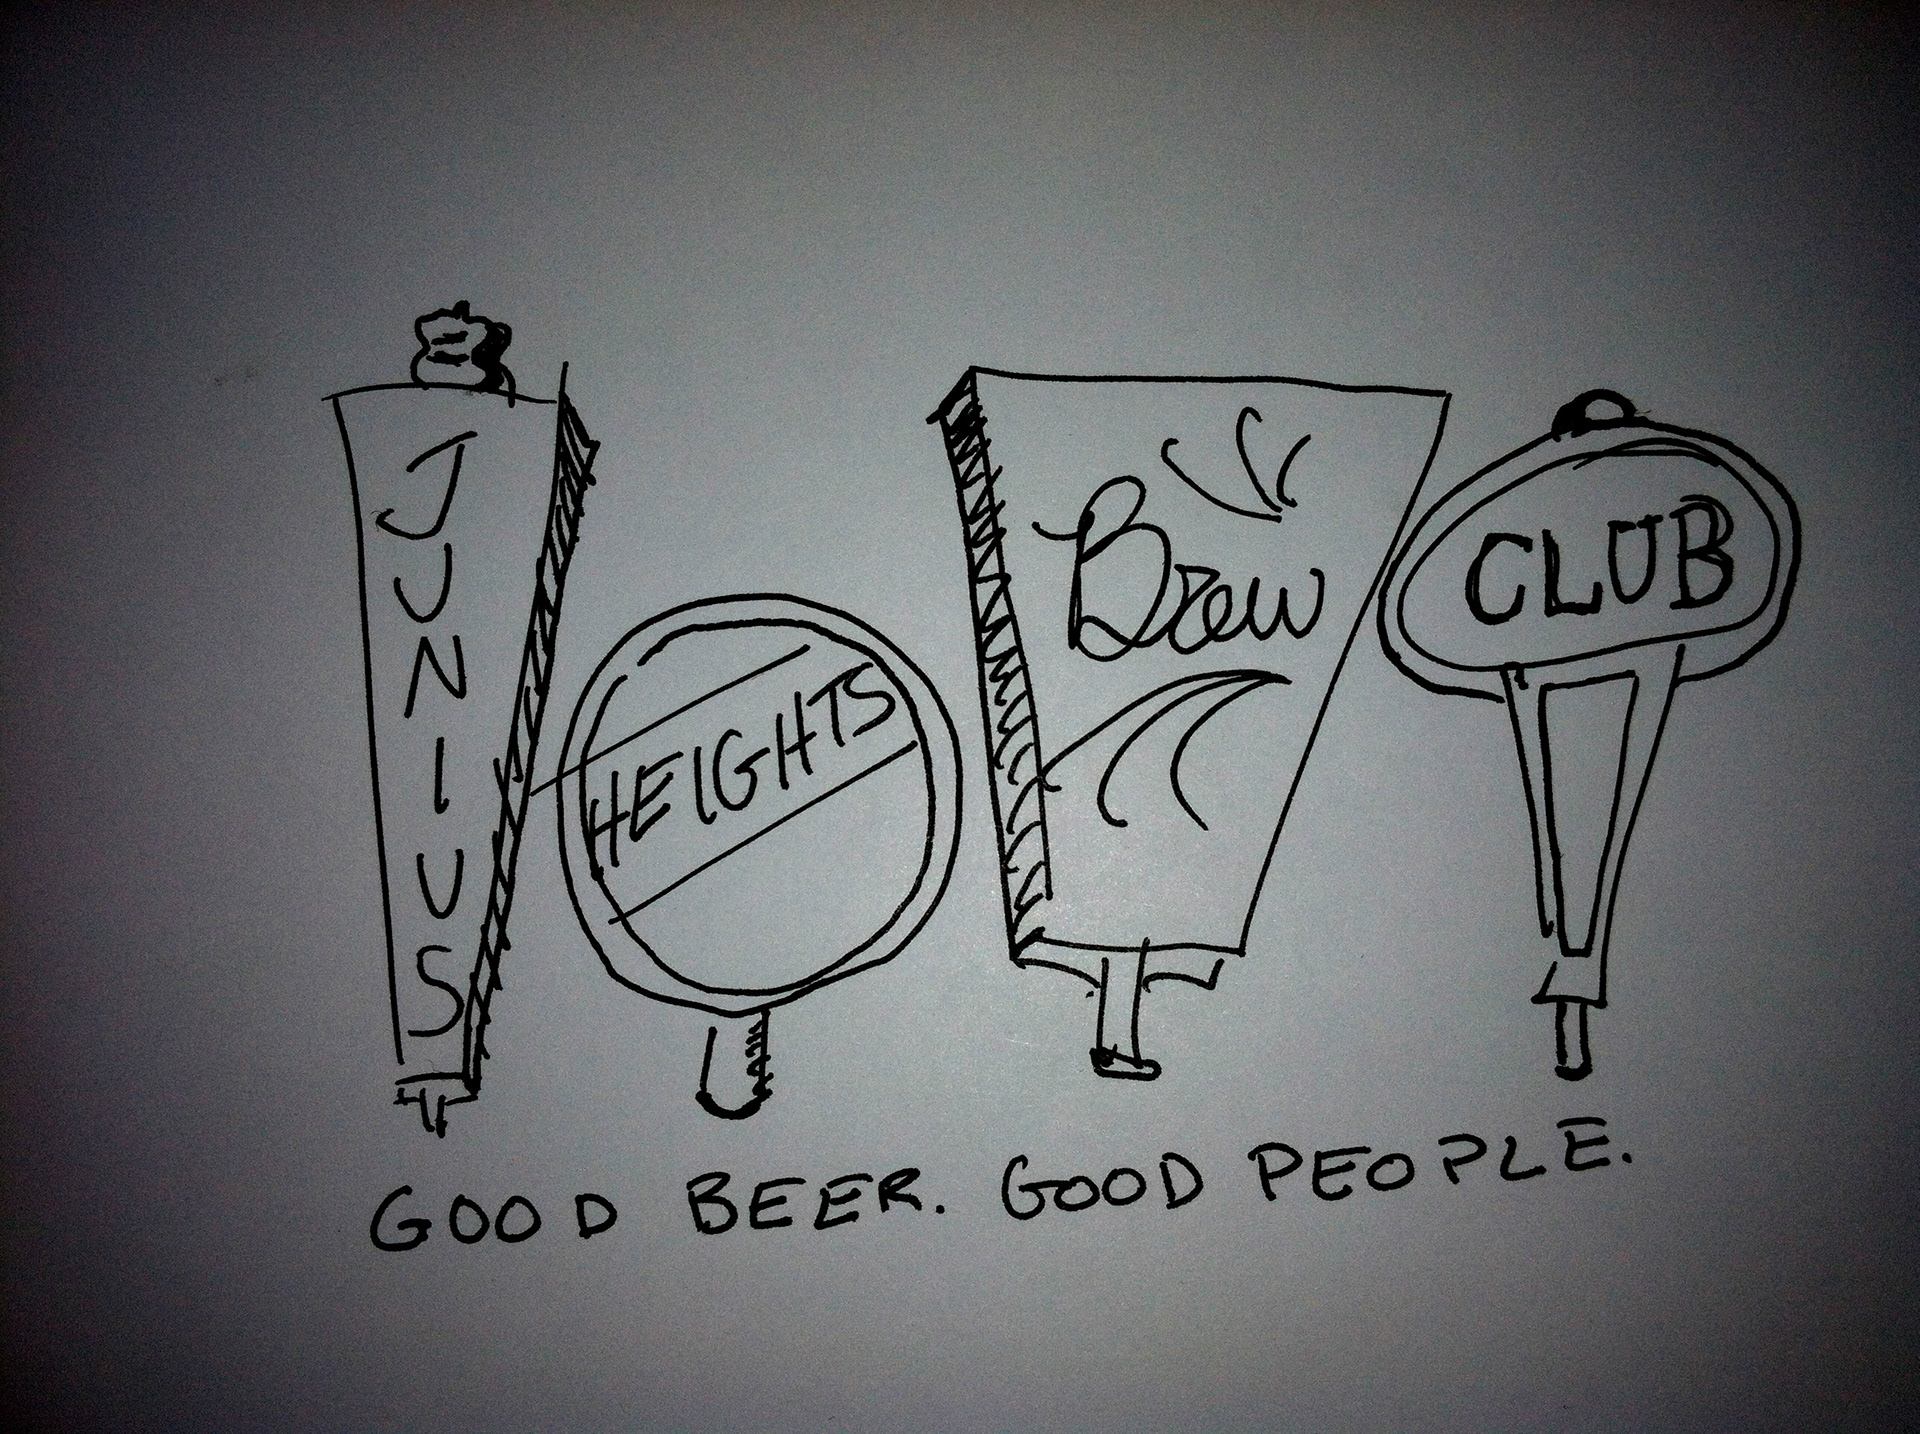 JUNIUS
HEIGHTS
Brew
CLUB
GOOD BEER. GOOD PEOPLE.